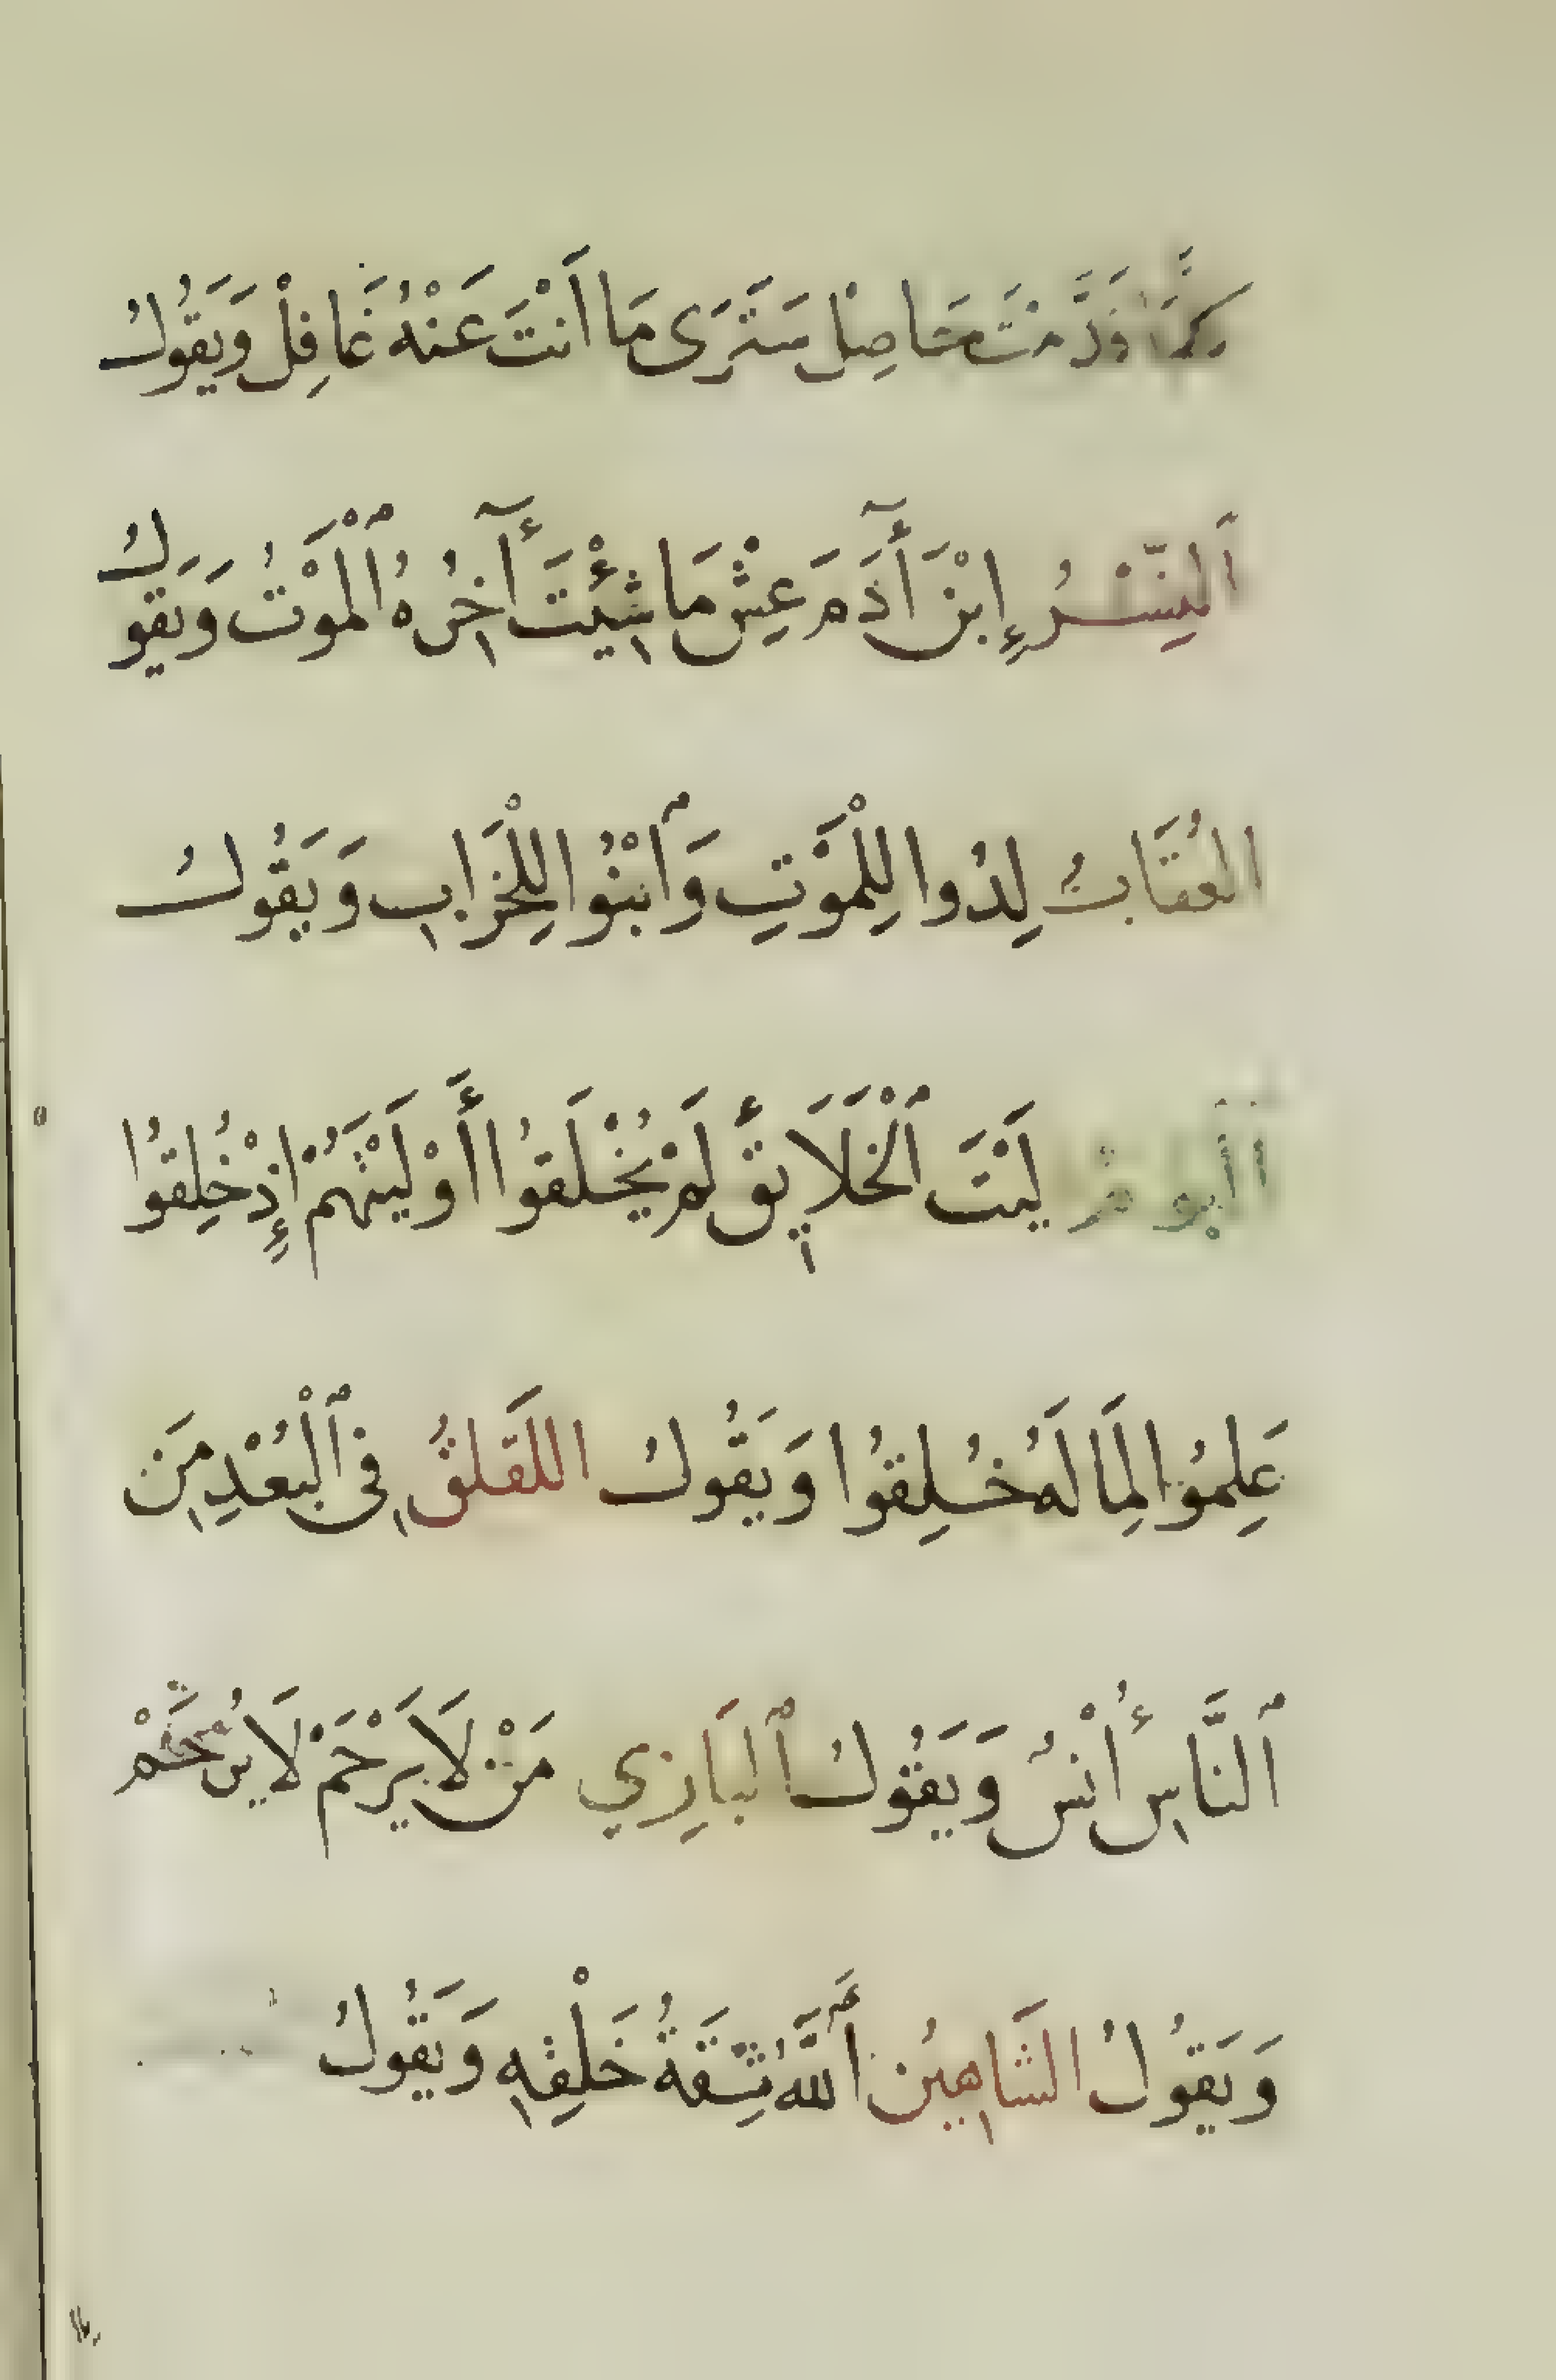 كَمَا قَدَّمْتَ حَاصِلْ سَتَرَى مَا أَنْتَ عَنْهُ غَافِلْ وَيَقُولُ
اَلنِّسْرُ إِبْنَ أَدَمَ عِشْ مَا شِئْتَ أَخِرُهُ ٱلْمَوْتُ وَيَقُولُ
العُقَابُ لِدُوا لِلْمَوْتِ وَٱبْنُوا لِلْخَرَابِ وَيَقُولُ
اَلْبُومُ لَيْتَ ٱلْخَلَائِقَ لَمْ يُخْلَقُوا أَوْ لَيْتَهُمْ إِذْ خُلِقُوا
عَلِمُوا لِمَا لَهُ خُلِقُوا وَيَقُولُ اللَقَلَقُ فِي ٱلْبُعْدِ مِنَ
ٱلنَّاسِ أُنْسُ وَيَقُولُ ٱلبَازِي مَنْ لَا يَرْحَمْ لَا يُرْحَمْ
وَيَقُولُ الشَاهِينُ أَللَّهُ ثِقَةُ خَلْقِهِ وَيَقُولُ